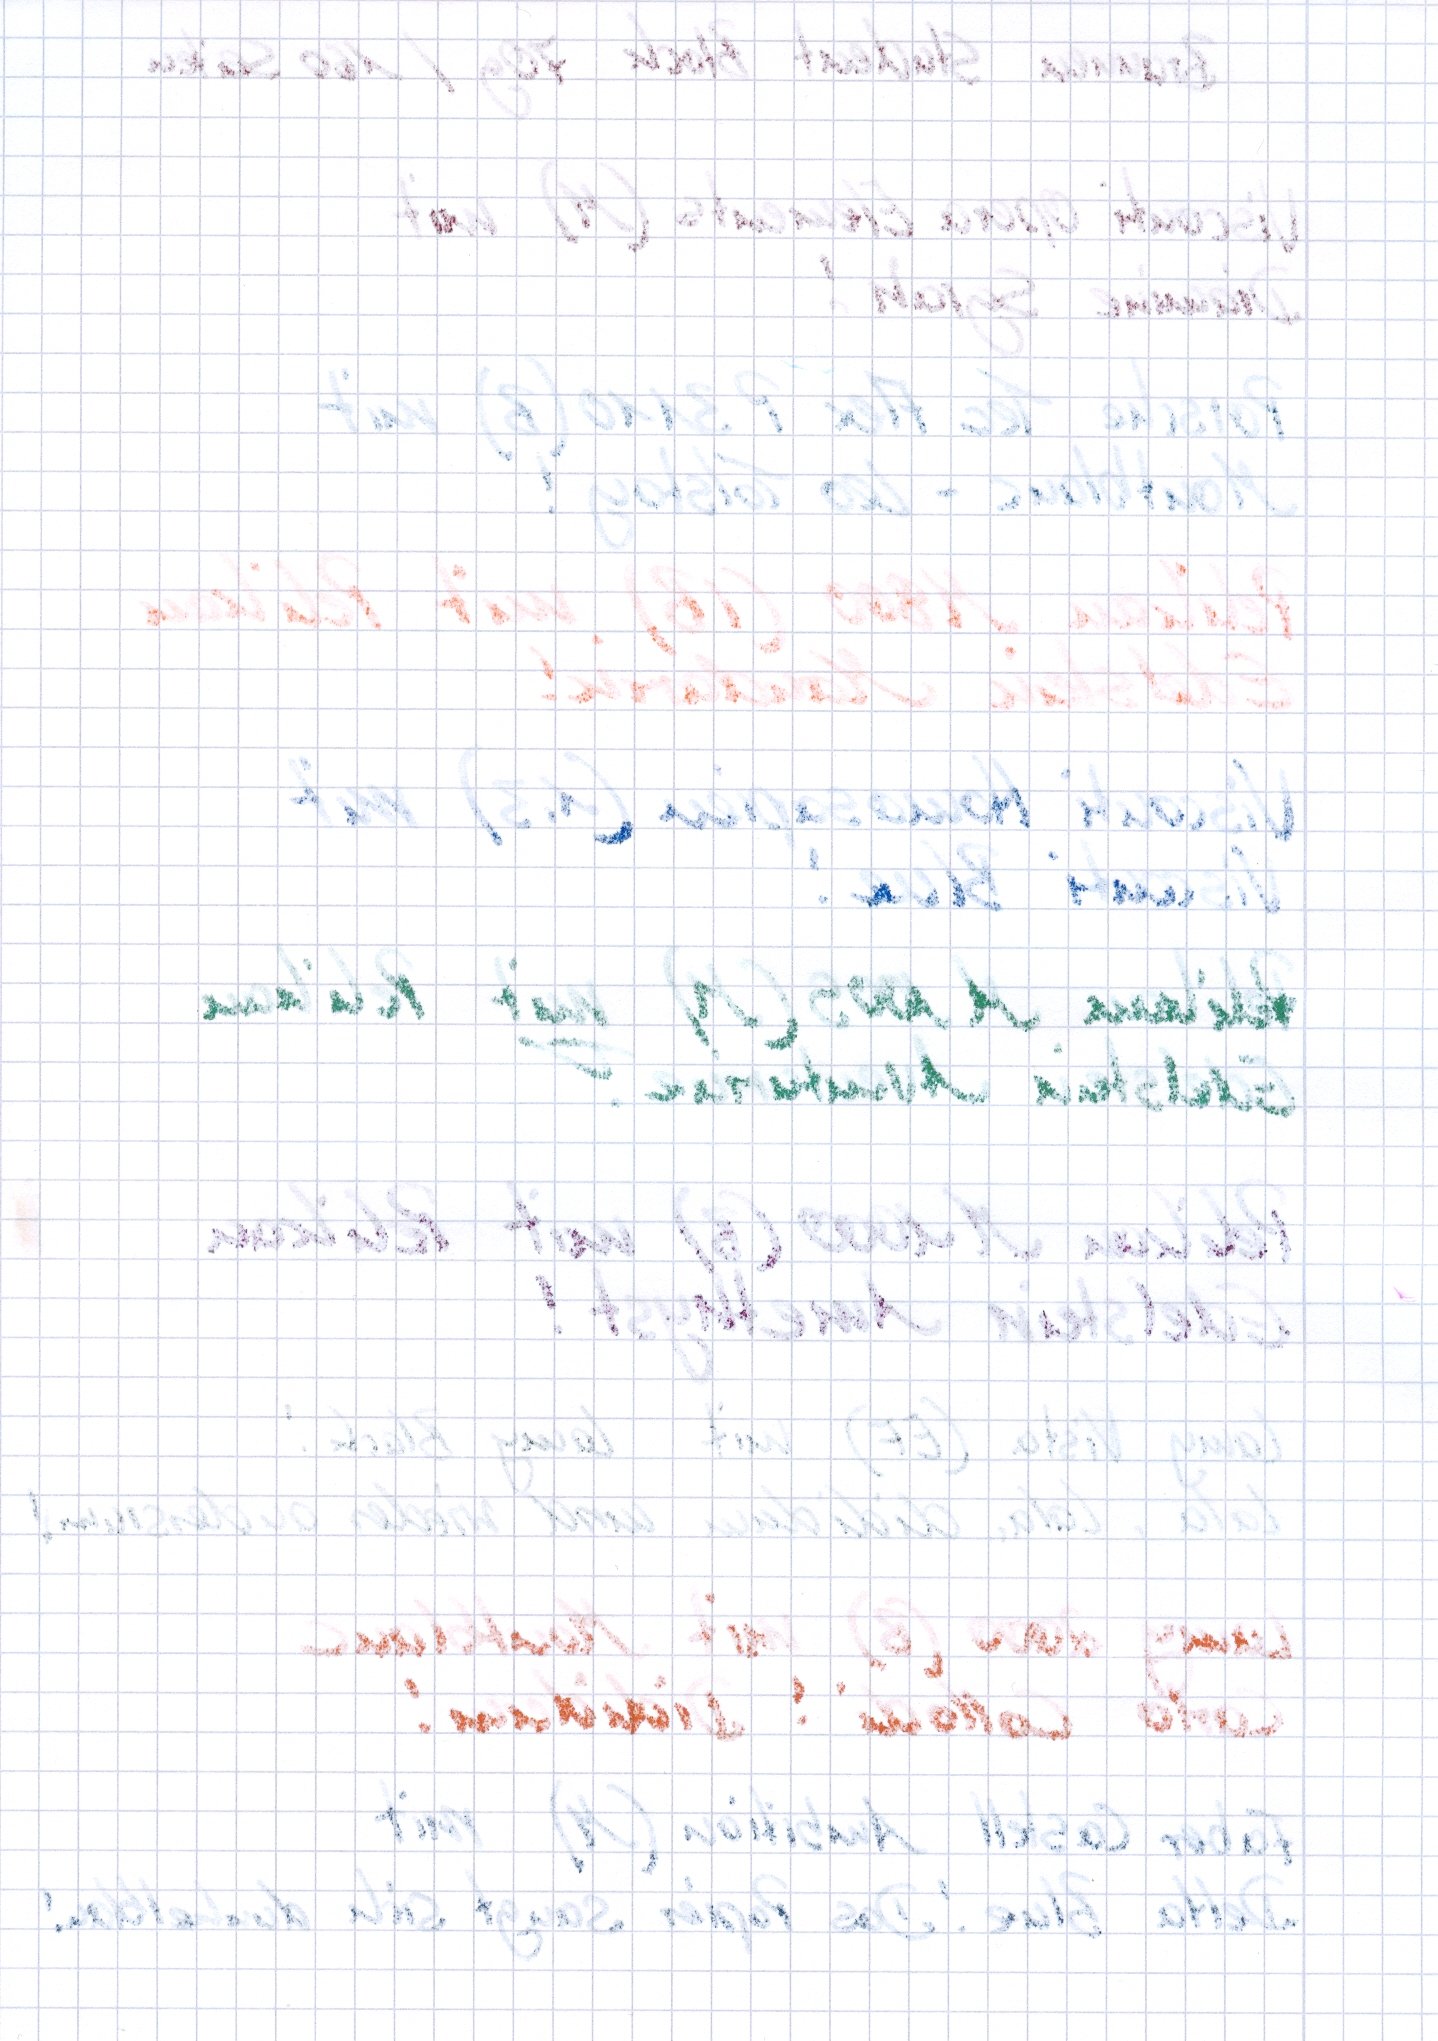 Brunnen Student Block 70g / 160 Seiten
Visconti Opera Elements (M) mit
Diamine Syrah!
Porsche Tec Flex P3110 (B) mit
Montblanc - Leo Tolstoy!
Pelikan M800 (IB) mit Pelikan
Edelstein Mandarin!
Visconti Homosapien (1.3) mit
Visconti Blue!
Pelikan M205 (M) mit Pelikan
Edelstein Aventurine!
Pelikan (B) mit Pelikan
Edelstein Amethyst!
Lamy Vista (EF) mit Lamy Black!
Lala, Lala, dididum und wieder
Lamy 2000 (B) mit Montblanc
Carlo Collodi! Dididum!
Faber Castell Ambition (M) mit
Delta Blue! Das Papier saugt sich